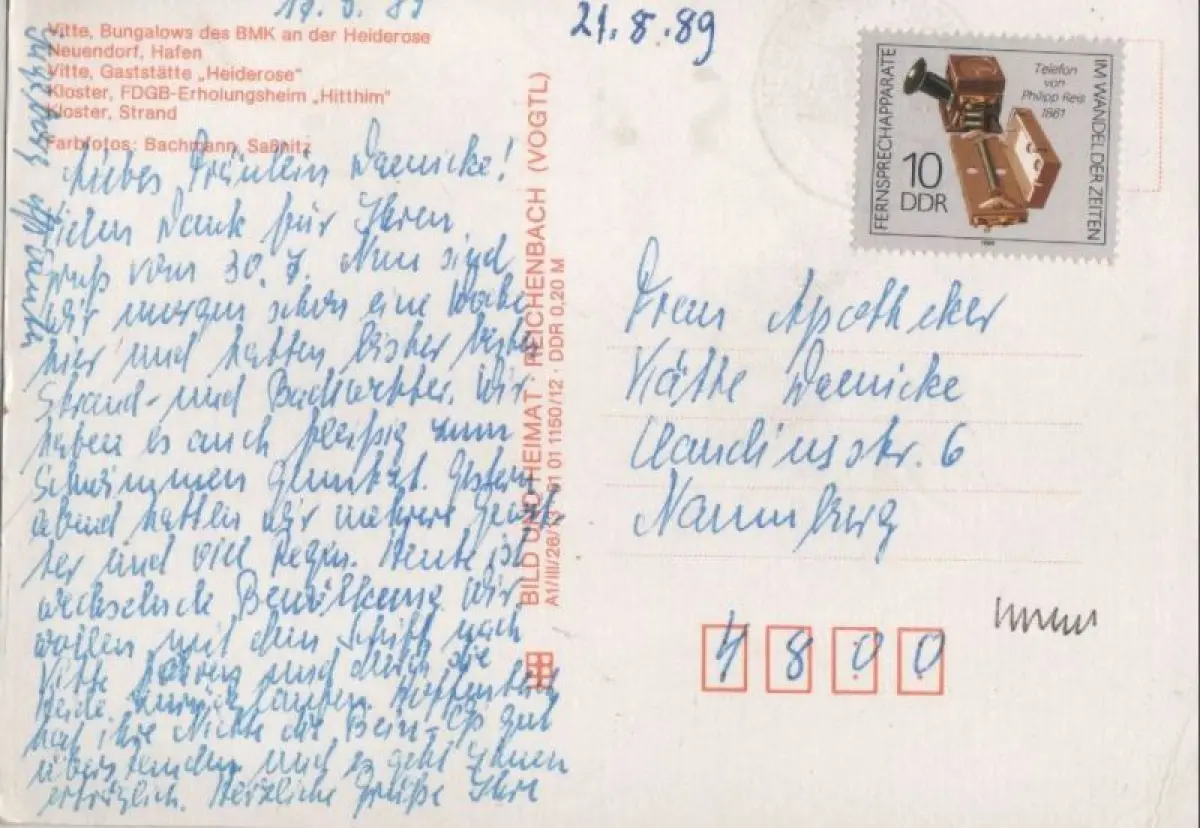 21.8.89
Vitte, Bungalows des BMK an der Heiderose
Neuendorf, Hafen
Vitte, Gaststätte „Heiderose“
Kloster, FDGB-Erholungsheim „Hitthim“
Kloster, Strand
Farbfotos: Bachmann, Saßnitz
Liebes Fräulein Daenicke!
Vielen Dank für Ihren
Gruß vom 30.7. Nun sind
wir morgen schon eine Woche
hier und hatten bisher
Strand- und Badewetter. Wir
haben es auch fleißig zum
Schwimmen genutzt. Gestern
abend hatten wir mehrere Gewit-
ter und viel Regen. Heute ist
wechselnde Bewölkung. Wir
wollen mit dem Schiff nach
Vitte fahren und durch die
Heide zurück laufen. Hoffentlich
hat ihre Nichte die Bein-Op gut
überstanden und es geht Ihnen
erträglich. Herzliche Grüße Ihre
BILD UND HEIMAT · REICHENBACH (VOGTL)
A1/III/26/13 01 01 1150/12 · DDR 0,20 M
FERNSPRECHAPPARATE
IM WANDEL DER ZEITEN
Telefon
von
Philipp Reis
1861
10
DDR
Frau Apotheker
Käthe Daenicke
Claudiusstr. 6
Naumburg
4800